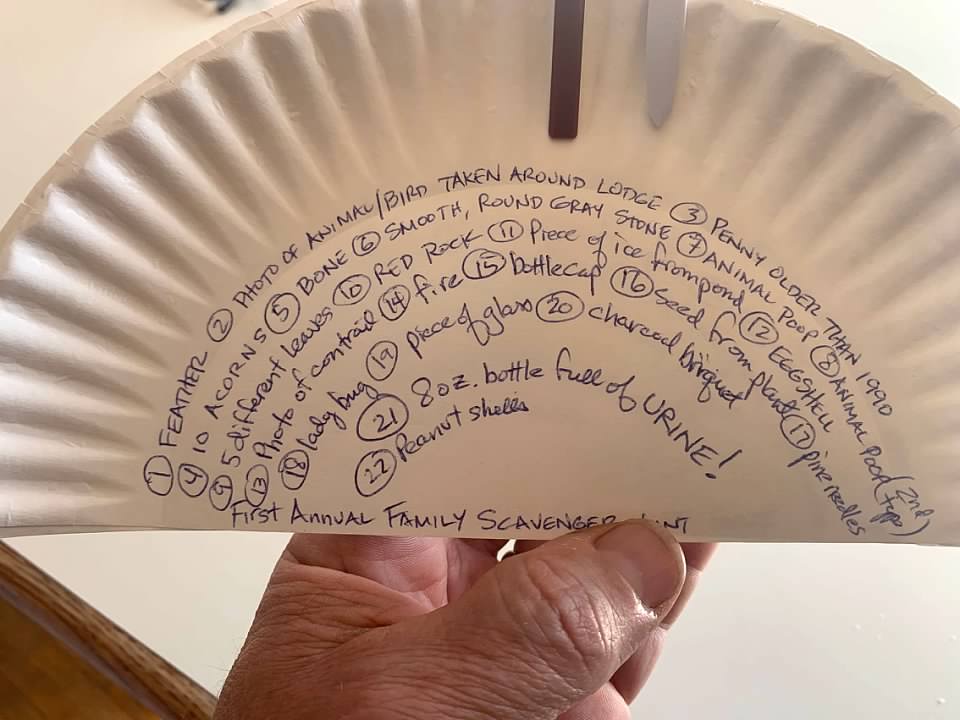 ① FEATHER ② PHOTO OF ANIMAL/BIRD TAKEN AROUND LODGE ③ PENNY OLDER THAN 1990
④ 10 ACORNS ⑤ BONE ⑥ SMOOTH, ROUND GRAY STONE ⑦ ANIMAL POOP ⑧ ANIMAL POOP (2nd type)
⑨ 5 different leaves ⑩ RED ROCK ⑪ Piece of ice from pond ⑫ EGGSHELL
⑬ Photo of contrail ⑭ fire ⑮ bottlecap ⑯ Seed from plant ⑰ pine needles
⑱ lady bug ⑲ piece of glass ⑳ charcoal briquet
㉑ 8 oz. bottle full of URINE!
㉒ Peanut shells
First Annual Family Scavenger